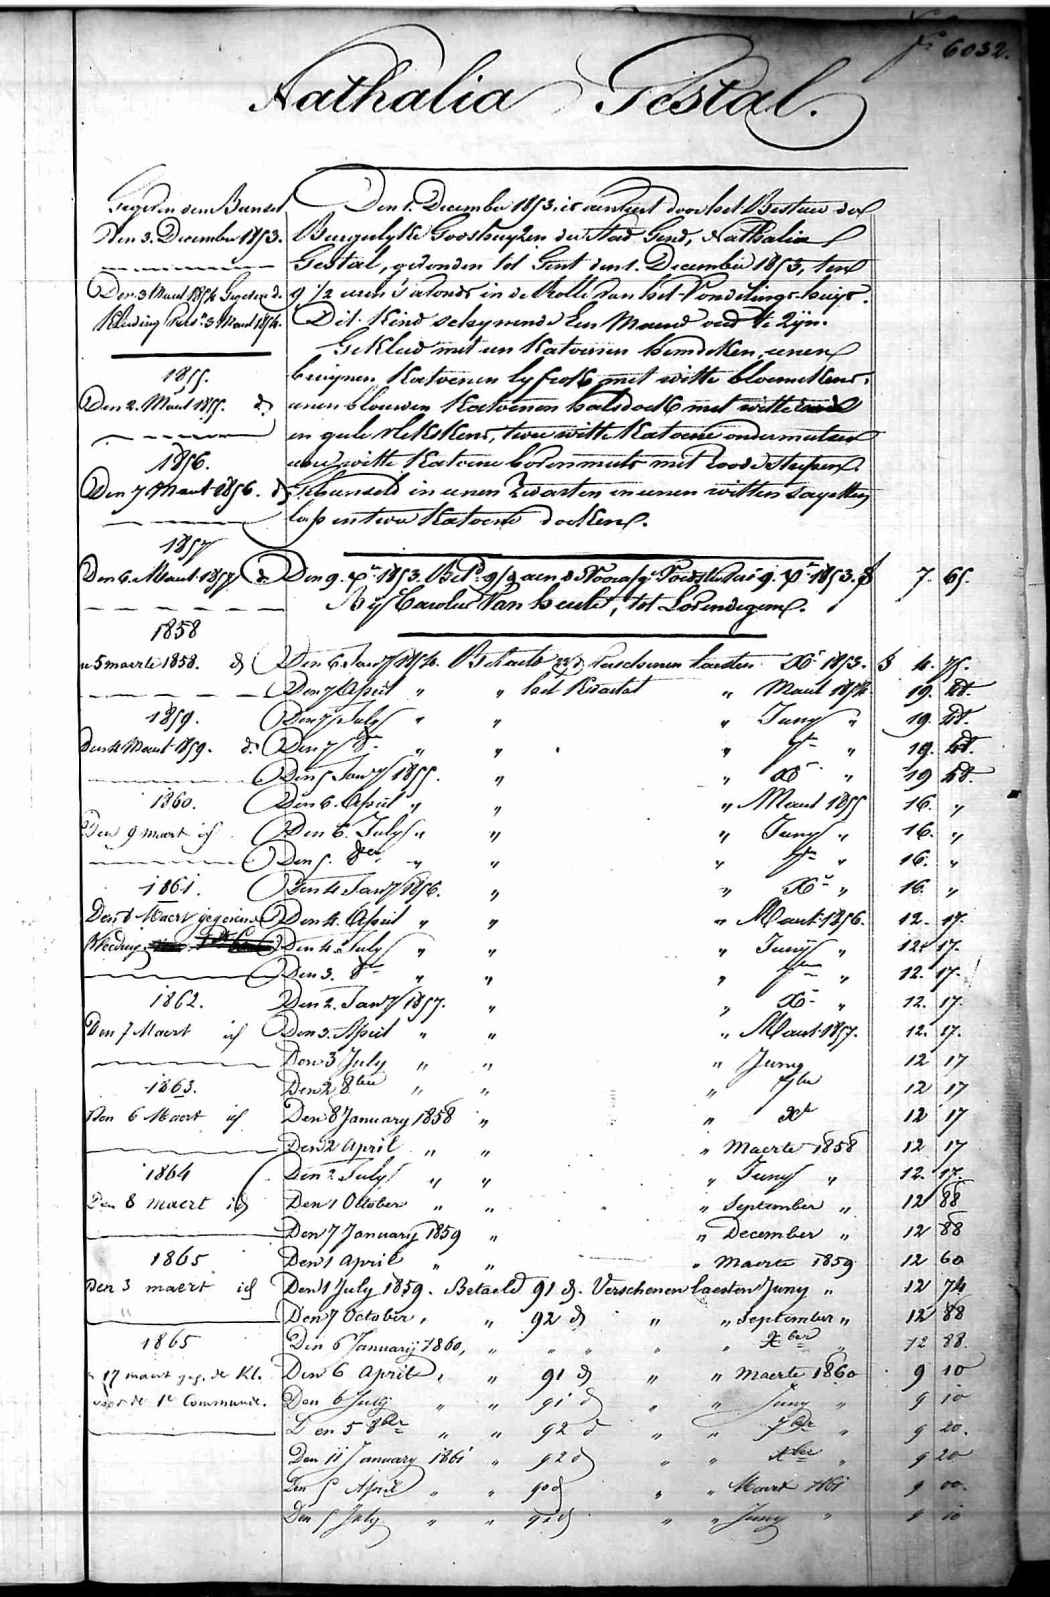 N° 6032.
Nathalia Gestal.
Gegeven een Bunsel
Den 3. December 1853.
Den 3 Maart 1854 Gegeven de
Kleeding 3 Maart 1854.
1855.
Den 2. Maart 1855. d°
1856.
Den 7 Maart 1856. d°
1857
Den 6. Maart 1857 d°
1858
5 maerte 1858. d°
1859.
Den 4 Maart 1859. d°
1860.
Den 9 mart id
1861.
Den 8 Maert gegeven de
Kleeding
1862.
Den 7 Maert id
1863.
Den 6 Maert id
1864
Den 8 maert id
1865
Den 3 maert id
1865
17 maert geg. de Kl.
voor de 1e Communie.
Den 1. December 1853, is aenveert door het Bestuer der
Burgerlyke Godshuyzen der Stad Gend, Nathalia
Gestal, gevonden tot Gent den 1. December 1853, ten
9 1/2 uren 's avonds in de Rolle van het Vondelings-huys.
Dit Kind schynende Een Maend oud te zyn.
Gekleed met een Katoenen hemdeken, eenen
bruynen Katoenen lyfrok met witte bloemekens,
eenen blauwen Katoenen halsdoek met witte
en geele plekskens, twee witte Katoene ondermutsen
eene witte Katoene bovenmuts met Roode strepen.
Gebunseld in eenen Zwarten en eenen witten sayetten
lap en twee Katoene doeken.
Den 9. Xbr 1853. Bet. 9 Xbr 1853. f 7. 65.
By Carolus Van heule, tot Lovendegem.
Den 6. Jany 1854. Betaeld Verschenen laesten Xbr 1853. f 4. 75.
Den 7 April " " het Kwartal " Maart 1854 19. 48.
Den 7 July " " " Juny " 19. 48.
Den 7 8br " " " 7br " 19. 48.
Den 5 Jany 1855. " " Xbr " 19 48.
Den 6. April " " " Maart 1855 16. "
Den 6. July " " " Juny " 16. "
Den 5. 8ber " " " 7br " 16. "
Den 4 Jany 1856. " " Xbr " 16. "
Den 4. April " " " Maart 1856. 12. 17.
Den 4. July " " " Juny " 12. 17.
Den 3. 8br " " " 7br " 12. 17.
Den 2. Jany 1857. " " Xbr " 12. 17.
Den 3. April " " " Maart 1857. 12. 17.
Den 3 July " " " Juny 12 17
Den 2 8bre " " " 7bre 12 17
Den 8 January 1858 " " Xbr 12 17
Den 2 April " " " Maerte 1858 12 17
Den 2 July " " " Juny " 12. 17.
Den 1 October " " " September " 12 88
Den 7 January 1859 " " December " 12 88
Den 1 April " " " Maerte 1859 12 60
Den 1 July 1859. Betaeld 91 d. Verschenen laesten Juny " 12 74
Den 7 October " " 92 d " " September " 12 88
Den 6 January 1860, " " " " " Xber " 12 88.
Den 6 April " " 91 d " " Maerte 1860 9 10
Den 6 July " " 91 d " " Juny " 9 10
Den 5 8br " " 92 d " " 7br " 9 20.
Den 11 January 1861 " 92 d " " Xber " 9 20
Den 5 April " " 90 d " " Maert 1861 9 00.
Den 5 July " " 91 d " " Juny " 9 10